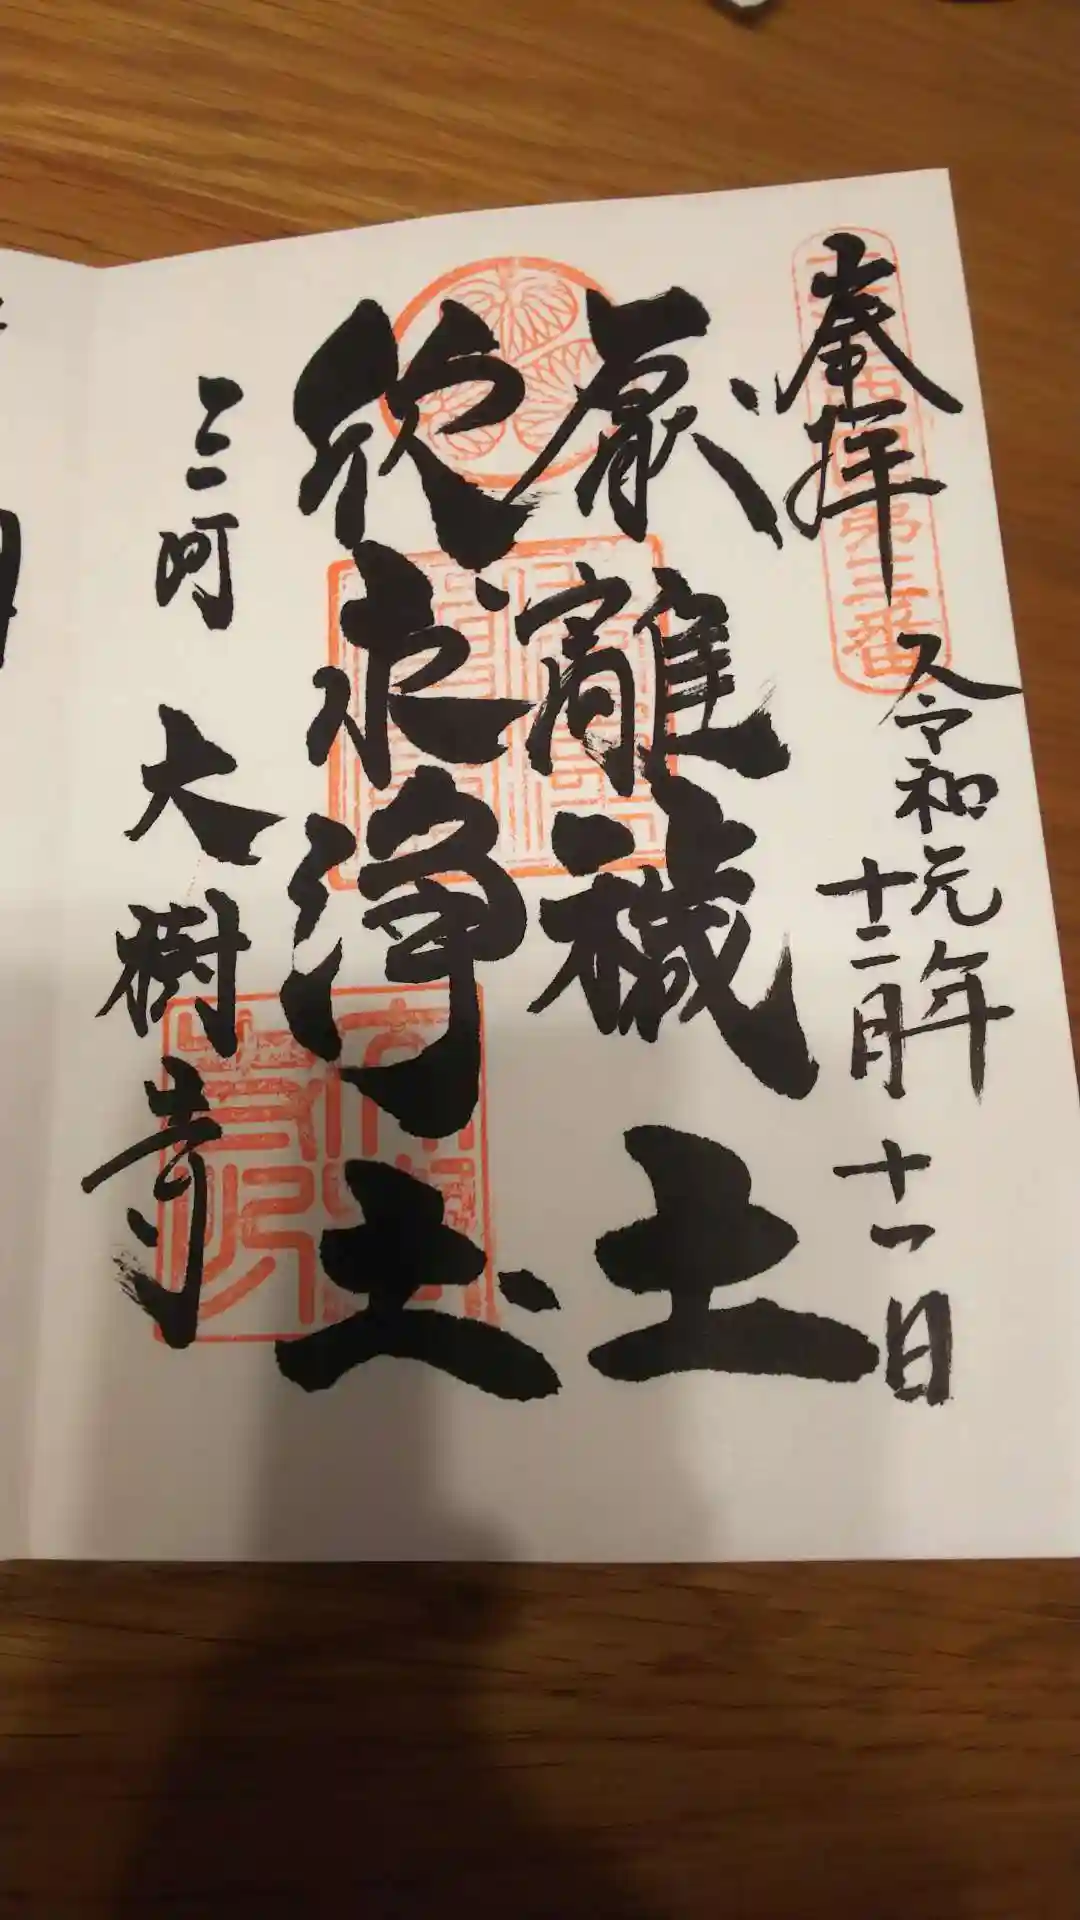 奉拝
令和元年
十二月十一日
厭離穢土
欣求浄土
三河
大樹寺